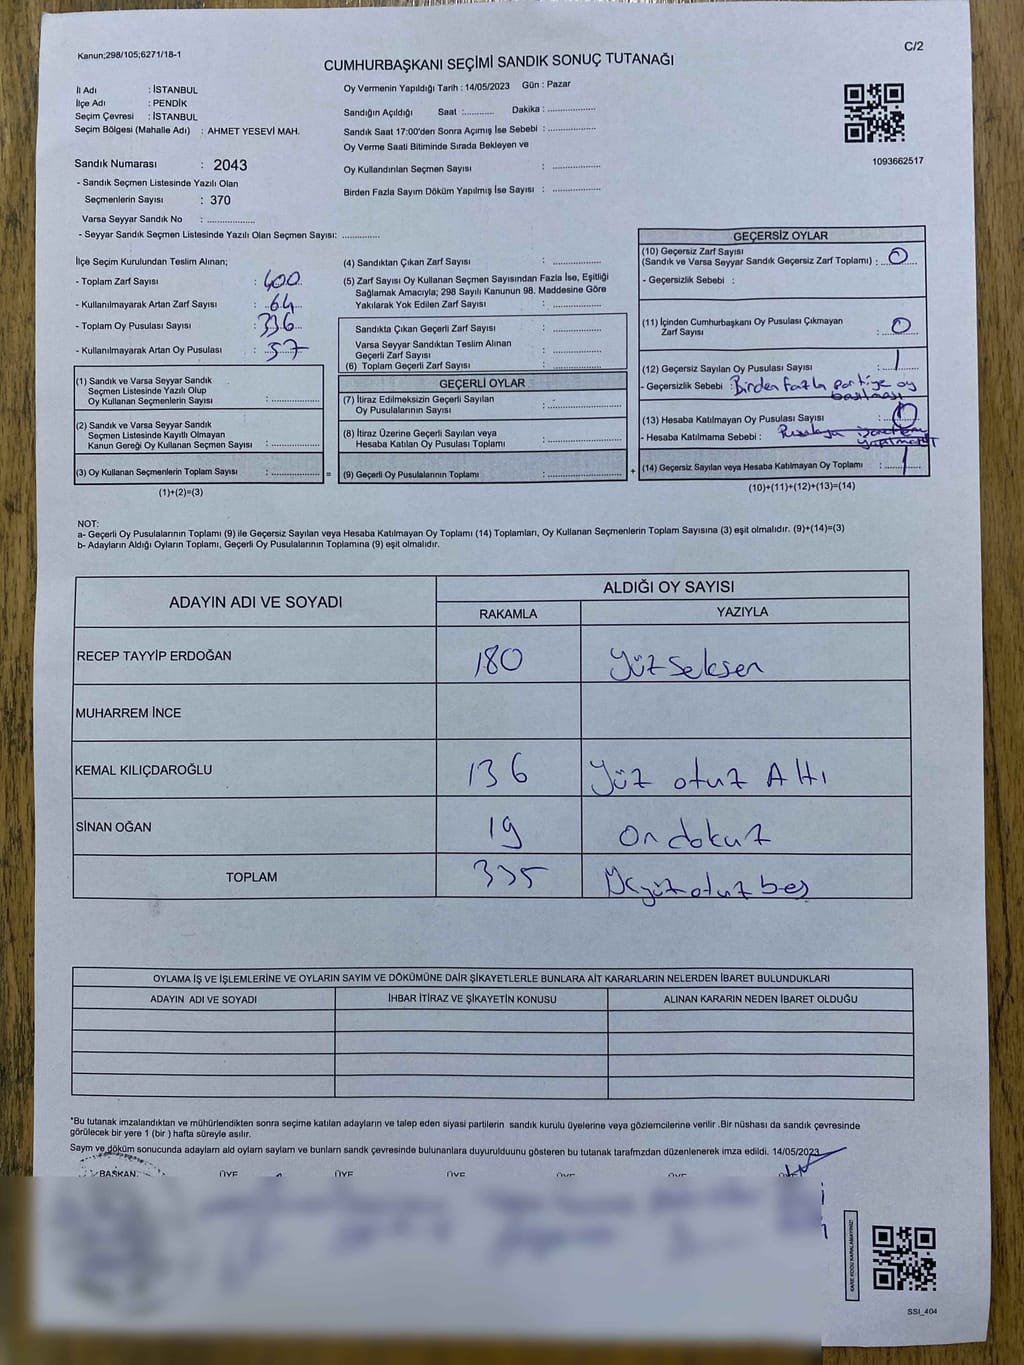 Kanun;298/105;6271/18-1
C/2
CUMHURBAŞKANI SEÇİMİ SANDIK SONUÇ TUTANAĞI
İl Adı : İSTANBUL
İlçe Adı : PENDİK
Seçim Çevresi : İSTANBUL
Seçim Bölgesi (Mahalle Adı) : AHMET YESEVİ MAH.
Sandık Numarası : 2043
- Sandık Seçmen Listesinde Yazılı Olan
Seçmenlerin Sayısı : 370
Varsa Seyyar Sandık No : ..................
- Seyyar Sandık Seçmen Listesinde Yazılı Olan Seçmen Sayısı: ..............
Oy Vermenin Yapıldığı Tarih : 14/05/2023 Gün : Pazar
Sandığın Açıldığı Saat :............ Dakika : .................
Sandık Saat 17:00'den Sonra Açımış İse Sebebi : .................
Oy Verme Saati Bitiminde Sırada Bekleyen ve
Oy Kullandırılan Seçmen Sayısı : .................
Birden Fazla Sayım Döküm Yapılmış İse Sayısı : .................
1093662517
İlçe Seçim Kurulundan Teslim Alınan;
- Toplam Zarf Sayısı : 400
- Kullanılmayarak Artan Zarf Sayısı : 64
- Toplam Oy Pusulası Sayısı : 336
- Kullanılmayarak Artan Oy Pusulası : 57
(1) Sandık ve Varsa Seyyar Sandık
Seçmen Listesinde Yazılı Olup
Oy Kullanan Seçmenlerin Sayısı : .................
(2) Sandık ve Varsa Seyyar Sandık
Seçmen Listesinde Kayıtlı Olmayan
Kanun Gereği Oy Kullanan Seçmen Sayısı : .................
(3) Oy Kullanan Seçmenlerin Toplam Sayısı : ................. =
(1)+(2)=(3)
(4) Sandıktan Çıkan Zarf Sayısı : .................
(5) Zarf Sayısı Oy Kullanan Seçmen Sayısından Fazla İse, Eşitliği
Sağlamak Amacıyla; 298 Sayılı Kanunun 98. Maddesine Göre
Yakılarak Yok Edilen Zarf Sayısı : .................
Sandıkta Çıkan Geçerli Zarf Sayısı : .................
Varsa Seyyar Sandıktan Teslim Alınan
Geçerli Zarf Sayısı : .................
(6) Toplam Geçerli Zarf Sayısı : .................
GEÇERLİ OYLAR
(7) İtiraz Edilmeksizin Geçerli Sayılan
Oy Pusulalarının Sayısı : .................
(8) İtiraz Üzerine Geçerli Sayılan veya
Hesaba Katılan Oy Pusulası Toplamı : .................
(9) Geçerli Oy Pusulalarının Toplamı : ................. +
GEÇERSİZ OYLAR
(10) Geçersiz Zarf Sayısı
(Sandık ve Varsa Seyyar Sandık Geçersiz Zarf Toplamı) : 0
- Geçersizlik Sebebi :
(11) İçinden Cumhurbaşkanı Oy Pusulası Çıkmayan
Zarf Sayısı : 0
(12) Geçersiz Sayılan Oy Pusulası Sayısı : 1
- Geçersizlik Sebebi : Birden fazla partiye oy
basılması
(13) Hesaba Katılmayan Oy Pusulası Sayısı : 0
- Hesaba Katılmama Sebebi :
(14) Geçersiz Sayılan veya Hesaba Katılmayan Oy Toplamı : 1
(10)+(11)+(12)+(13)=(14)
NOT:
a- Geçerli Oy Pusulalarının Toplamı (9) ile Geçersiz Sayılan veya Hesaba Katılmayan Oy Toplamı (14) Toplamları, Oy Kullanan Seçmenlerin Toplam Sayısına (3) eşit olmalıdır. (9)+(14)=(3)
b- Adayların Aldığı Oyların Toplamı, Geçerli Oy Pusulalarının Toplamına (9) eşit olmalıdır.
ADAYIN ADI VE SOYADI
ALDIĞI OY SAYISI
RAKAMLA YAZIYLA
RECEP TAYYİP ERDOĞAN 180 Yüz Seksen
MUHARREM İNCE
KEMAL KILIÇDAROĞLU 136 Yüz otuz Altı
SİNAN OĞAN 19 On dokuz
TOPLAM 335 Üçyüz otuz beş
OYLAMA İŞ VE İŞLEMLERİNE VE OYLARIN SAYIM VE DÖKÜMÜNE DAİR ŞİKAYETLERLE BUNLARA AİT KARARLARIN NELERDEN İBARET BULUNDUKLARI
ADAYIN ADI VE SOYADI İHBAR İTİRAZ VE ŞİKAYETİN KONUSU ALINAN KARARIN NEDEN İBARET OLDUĞU
*Bu tutanak imzalandıktan ve mühürlendikten sonra seçime katılan adayların ve talep eden siyasi partilerin sandık kurulu üyelerine veya gözlemcilerine verilir .Bir nüshası da sandık çevresinde
görülecek bir yere 1 (bir ) hafta süreyle asılır.
Sayım ve döküm sonucunda adayların aldı oyların sayların ve bunların sandk çevresinde bulunanlara duyurulduunu gösteren bu tutanak tarafmzdan düzenlenerek imza edildi. 14/05/2023
BAŞKAN ÜYE ÜYE ÜYE
KARE KODU KARALAMAYINIZ!
SSI_404